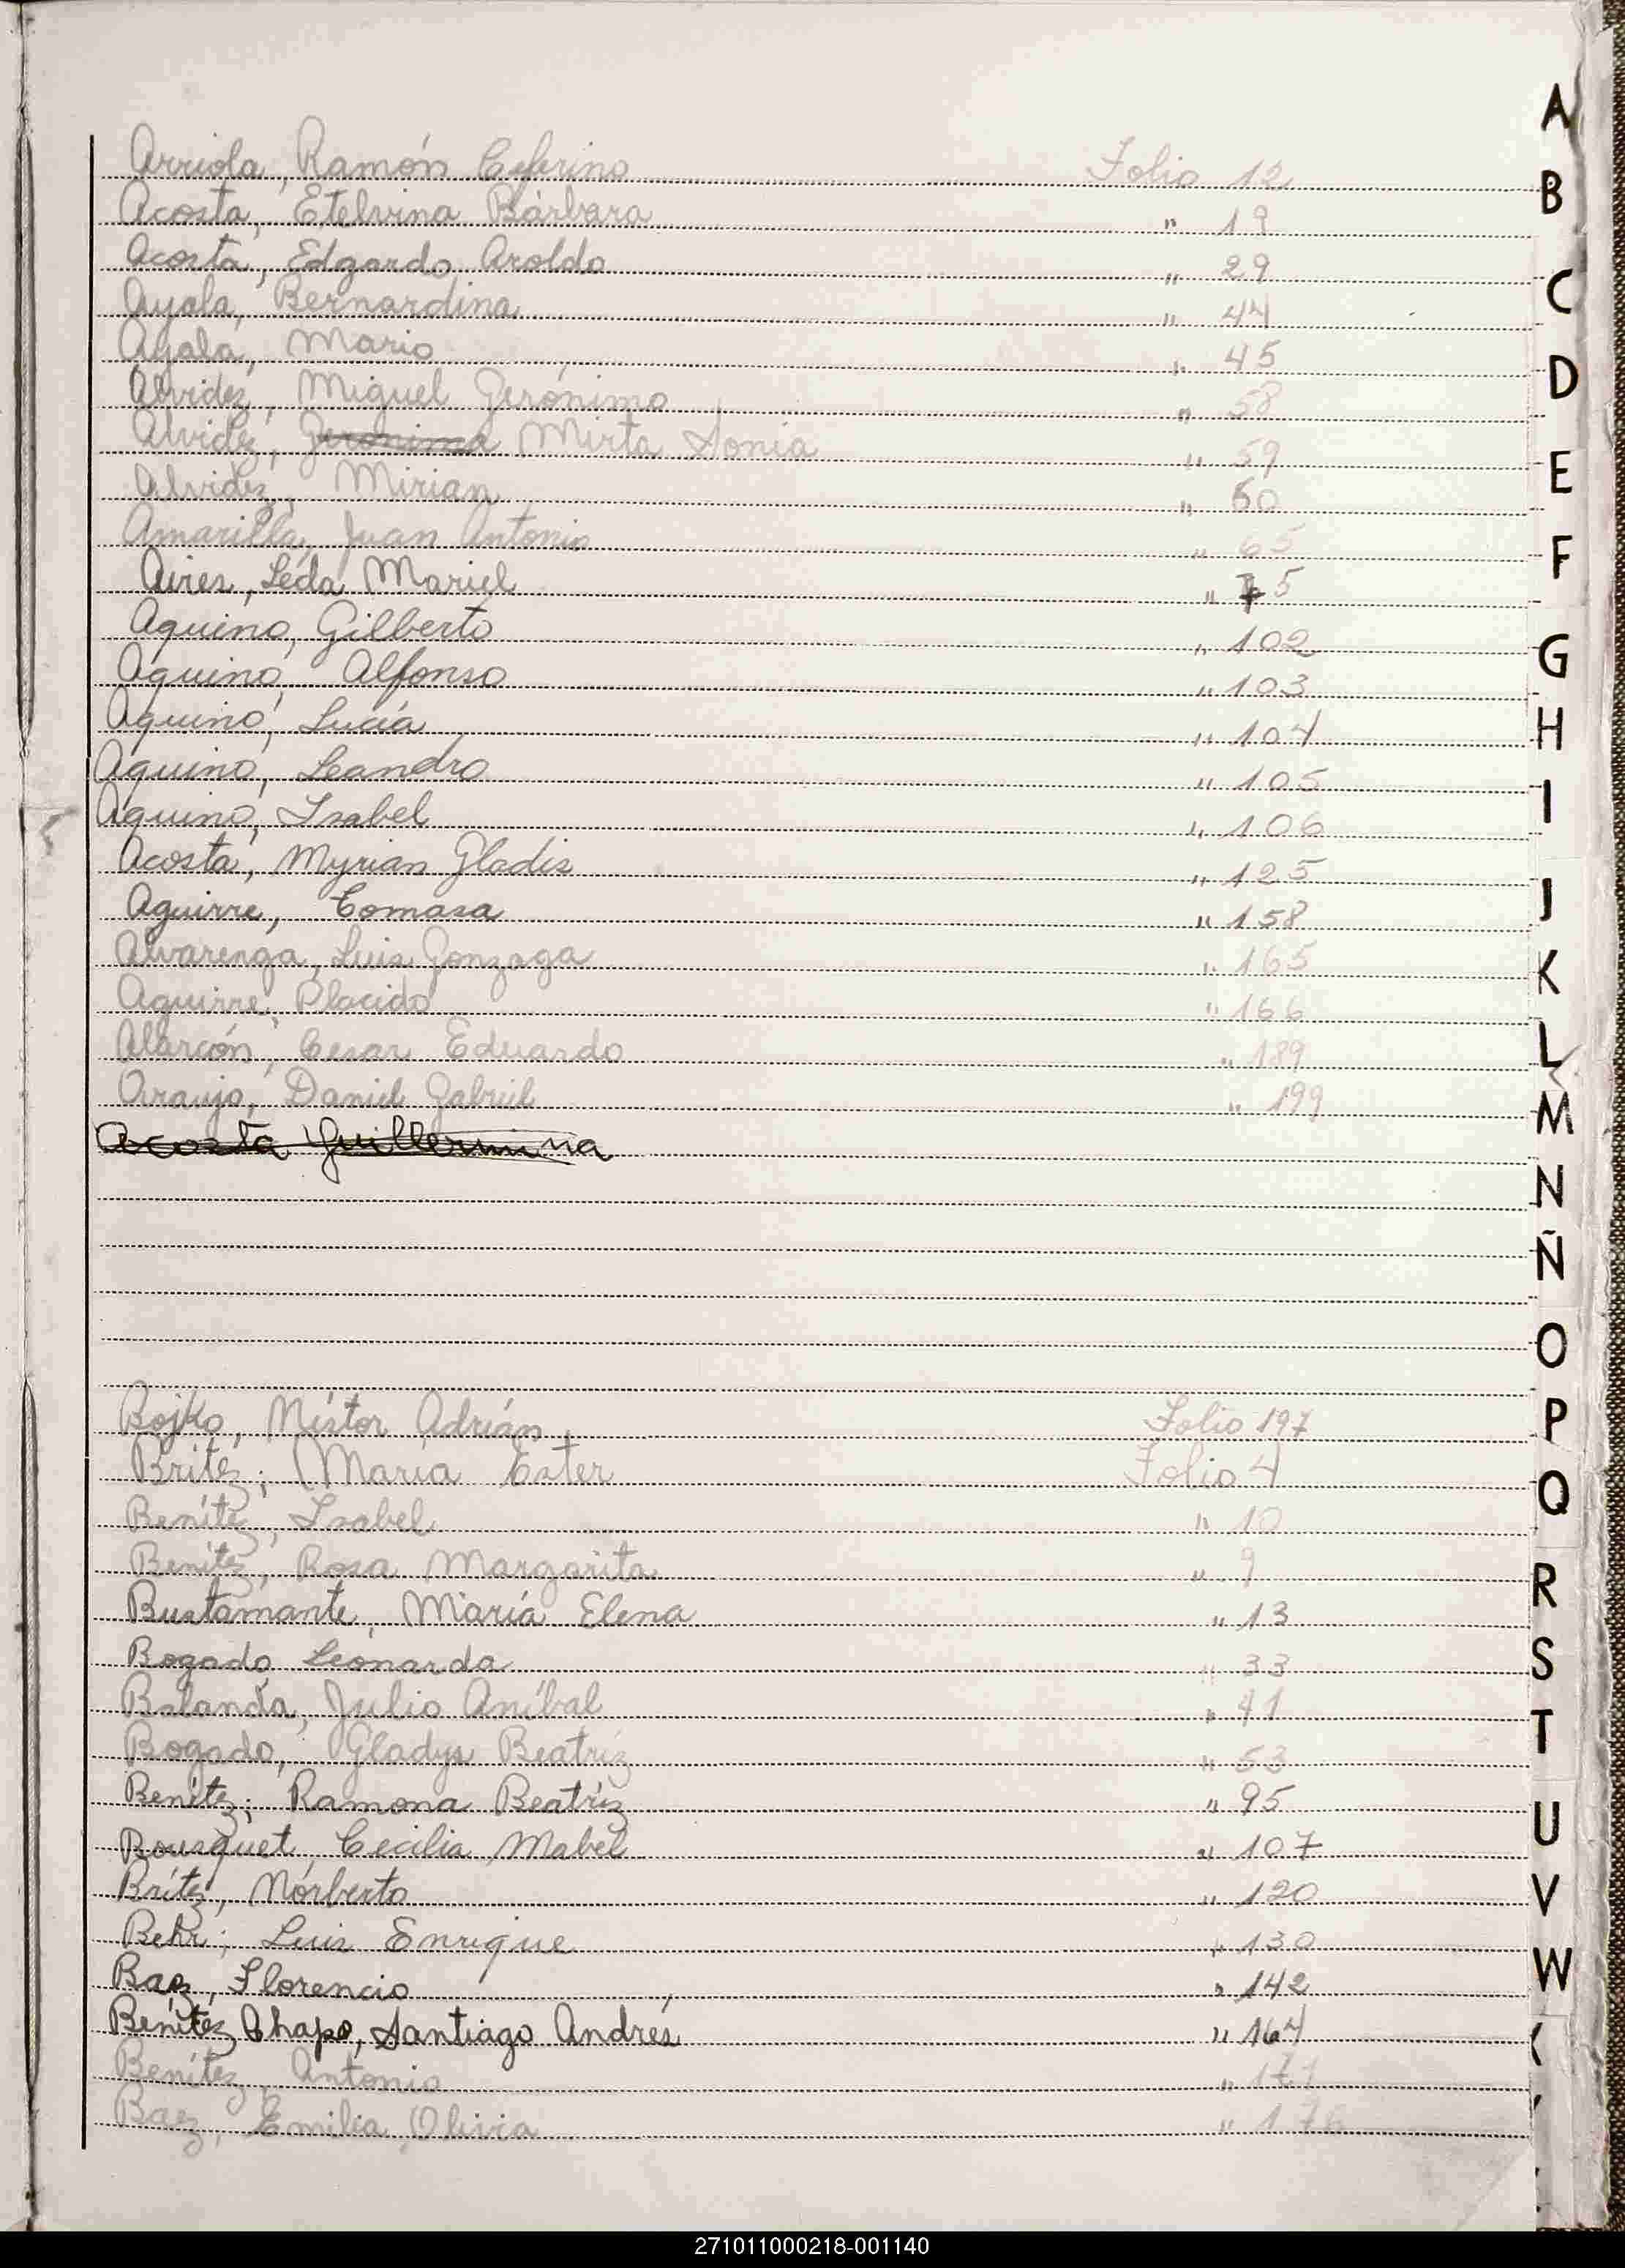 Arriola, Ramón Ceferino Folio 12
Acosta, Etelvina Bárbara " 19
Acosta, Edgardo Aroldo " 29
Ayala, Bernardina " 44
Ayala, Mario " 45
Alvidez, Miguel Gerónimo " 58
Alvidez, Geronima Mirta Sonia " 59
Alvidez, Mirian " 60
Amarilla, Juan Antonio " 65
Aires, Leda Mariel " 75
Aquino, Gilberto " 102
Aquino, Alfonso " 103
Aquino, Lucía " 104
Aquino, Leandro " 105
Aquino, Isabel " 106
Acosta, Myrian Gladis " 125
Aguirre, Tomasa " 158
Alvarenga, Luis Gonzaga " 165
Aguirre, Placido " 166
Alarcón, Cesar Eduardo " 189
Araujo, Daniel Gabriel " 199
Acosta Guillermina
Bojko, Néstor Adrián Folio 197
Britez, María Ester Folio 4
Benítez, Isabel " 10
Benítez, Rosa Margarita " 9
Bustamante, María Elena " 13
Bogado, Leonarda " 33
Balanda, Julio Aníbal " 41
Bogado, Gladys Beatríz " 53
Benítez, Ramona Beatríz " 95
Bousquet, Cecilia Mabel " 107
Brítez, Norberto " 120
Behr, Luis Enrique " 130
Baez, Florencio " 142
Benítez Chapo, Santiago Andrés " 164
Benítez, Antonio " 171
Baez, Emilia Olivia " 176
A
B
C
D
E
F
G
H
I
J
K
L
M
N
Ñ
O
P
Q
R
S
T
U
V
W
271011000218-001140